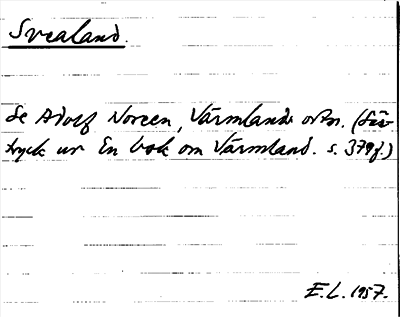 Svealand.
Se Adolf Noreen, Värmlands ortn. (Sär-
tryck ur En bok om Värmland. s. 379f.)
E.L. 1957.